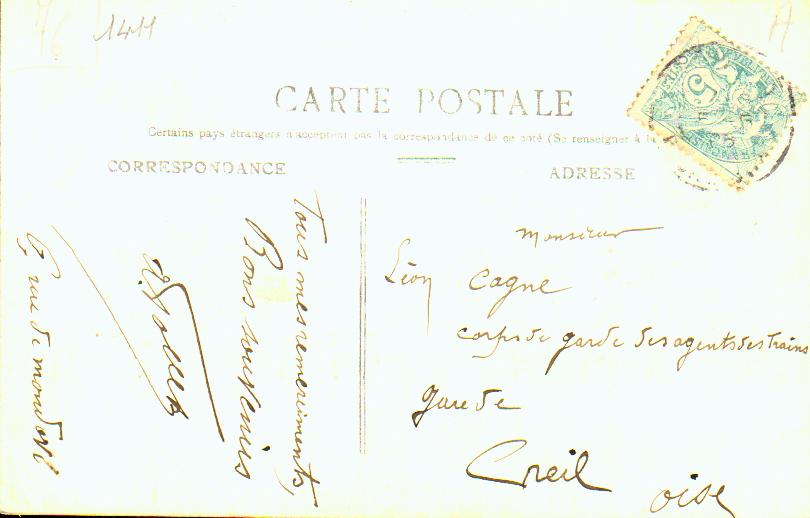 1411
CARTE POSTALE
Certains pays étrangers n'acceptent pas la correspondance de ce côté (Se renseigner à la
CORRESPONDANCE
ADRESSE
Tous mes remerciments,
Bons souvenirs
rue de
Monsieur
Léon Cagne
corps de garde des agents des trains
Gare de
Creil
oise
5